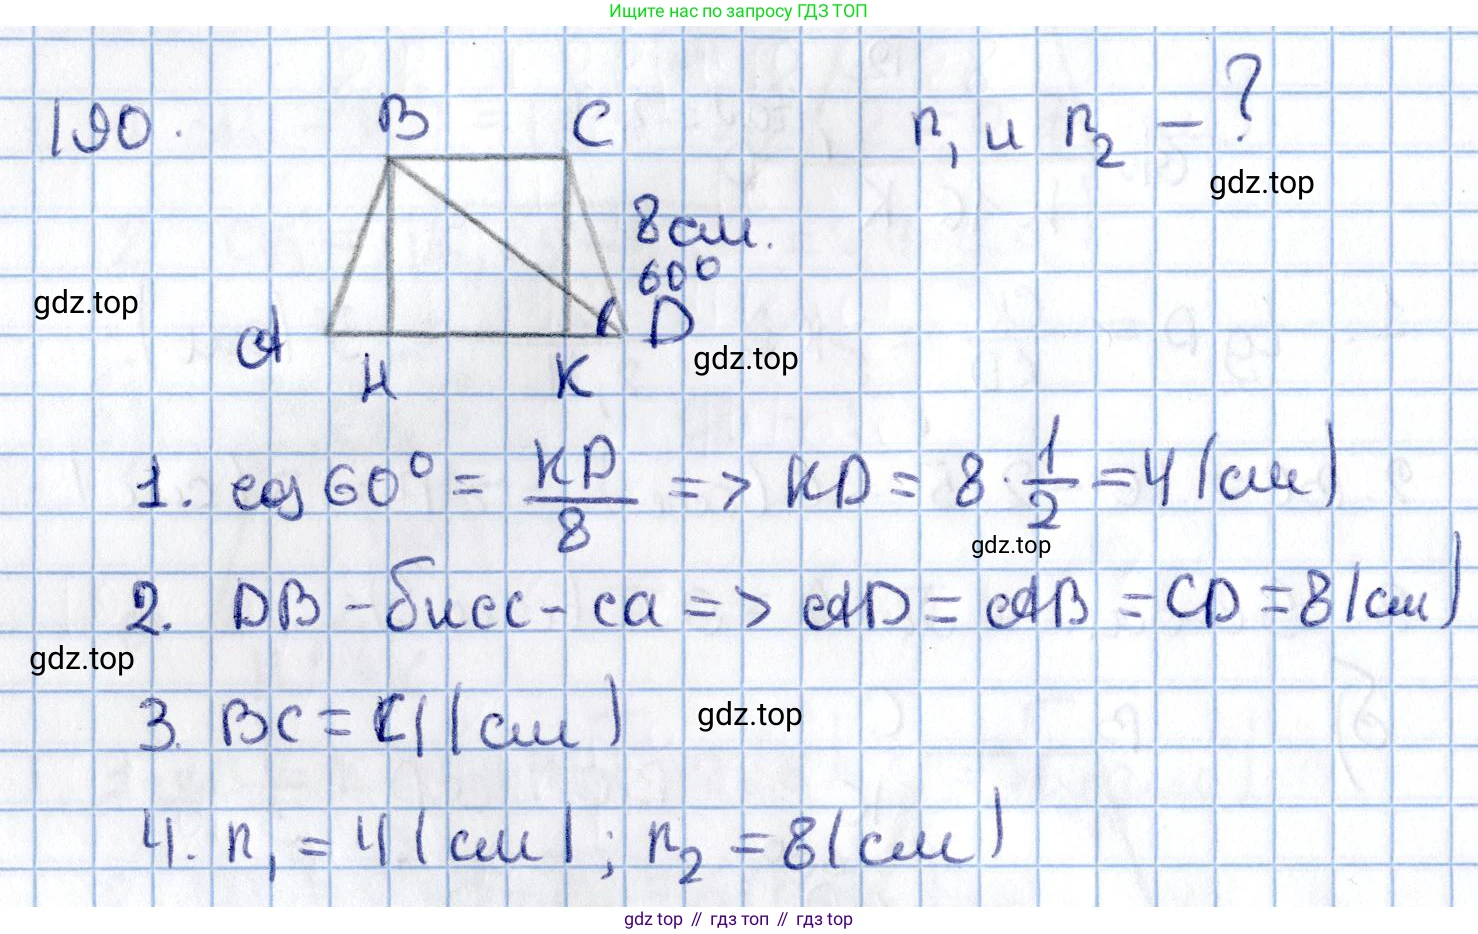 Ищите нас по запросу ГДЗ ТОП
190.
B C
r₁ и r₂ - ?
gdz.top
8 см.
60°
gdz.top
A H K D
gdz.top
1. cos 60° = KD/8 => KD = 8 · 1/2 = 4 (см)
gdz.top
2. DB - бисс-са => AD = AB = CD = 8 (см)
gdz.top
3. BC = 4 (см)
gdz.top
4. r₁ = 4 (см); r₂ = 8 (см)
gdz.top // гдз топ // гдз top